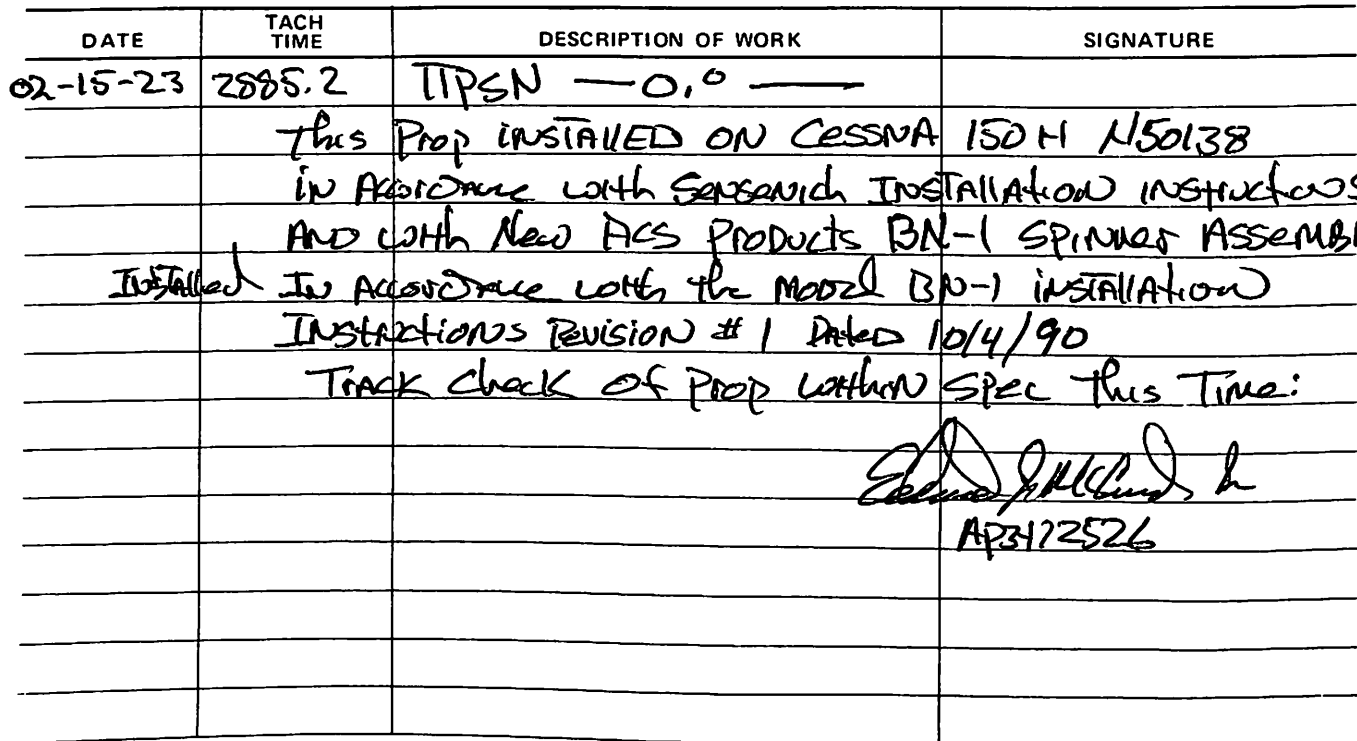 DATE TACH TIME DESCRIPTION OF WORK SIGNATURE
02-15-23 2885.2 TTPSN — 0.0 —
This Prop INSTALLED ON CESSNA 150H N50138
IN Accordance with Sensenich INSTALLATION INSTRUCTIONS
AND with New ACS PRODUCTS BN-1 SPINNER ASSEMBl
Installed In Accordance with the Model BN-1 installation
Instructions Revision # 1 Dated 10/4/90
Track check of Prop within SPEC This Time:
AP3172526